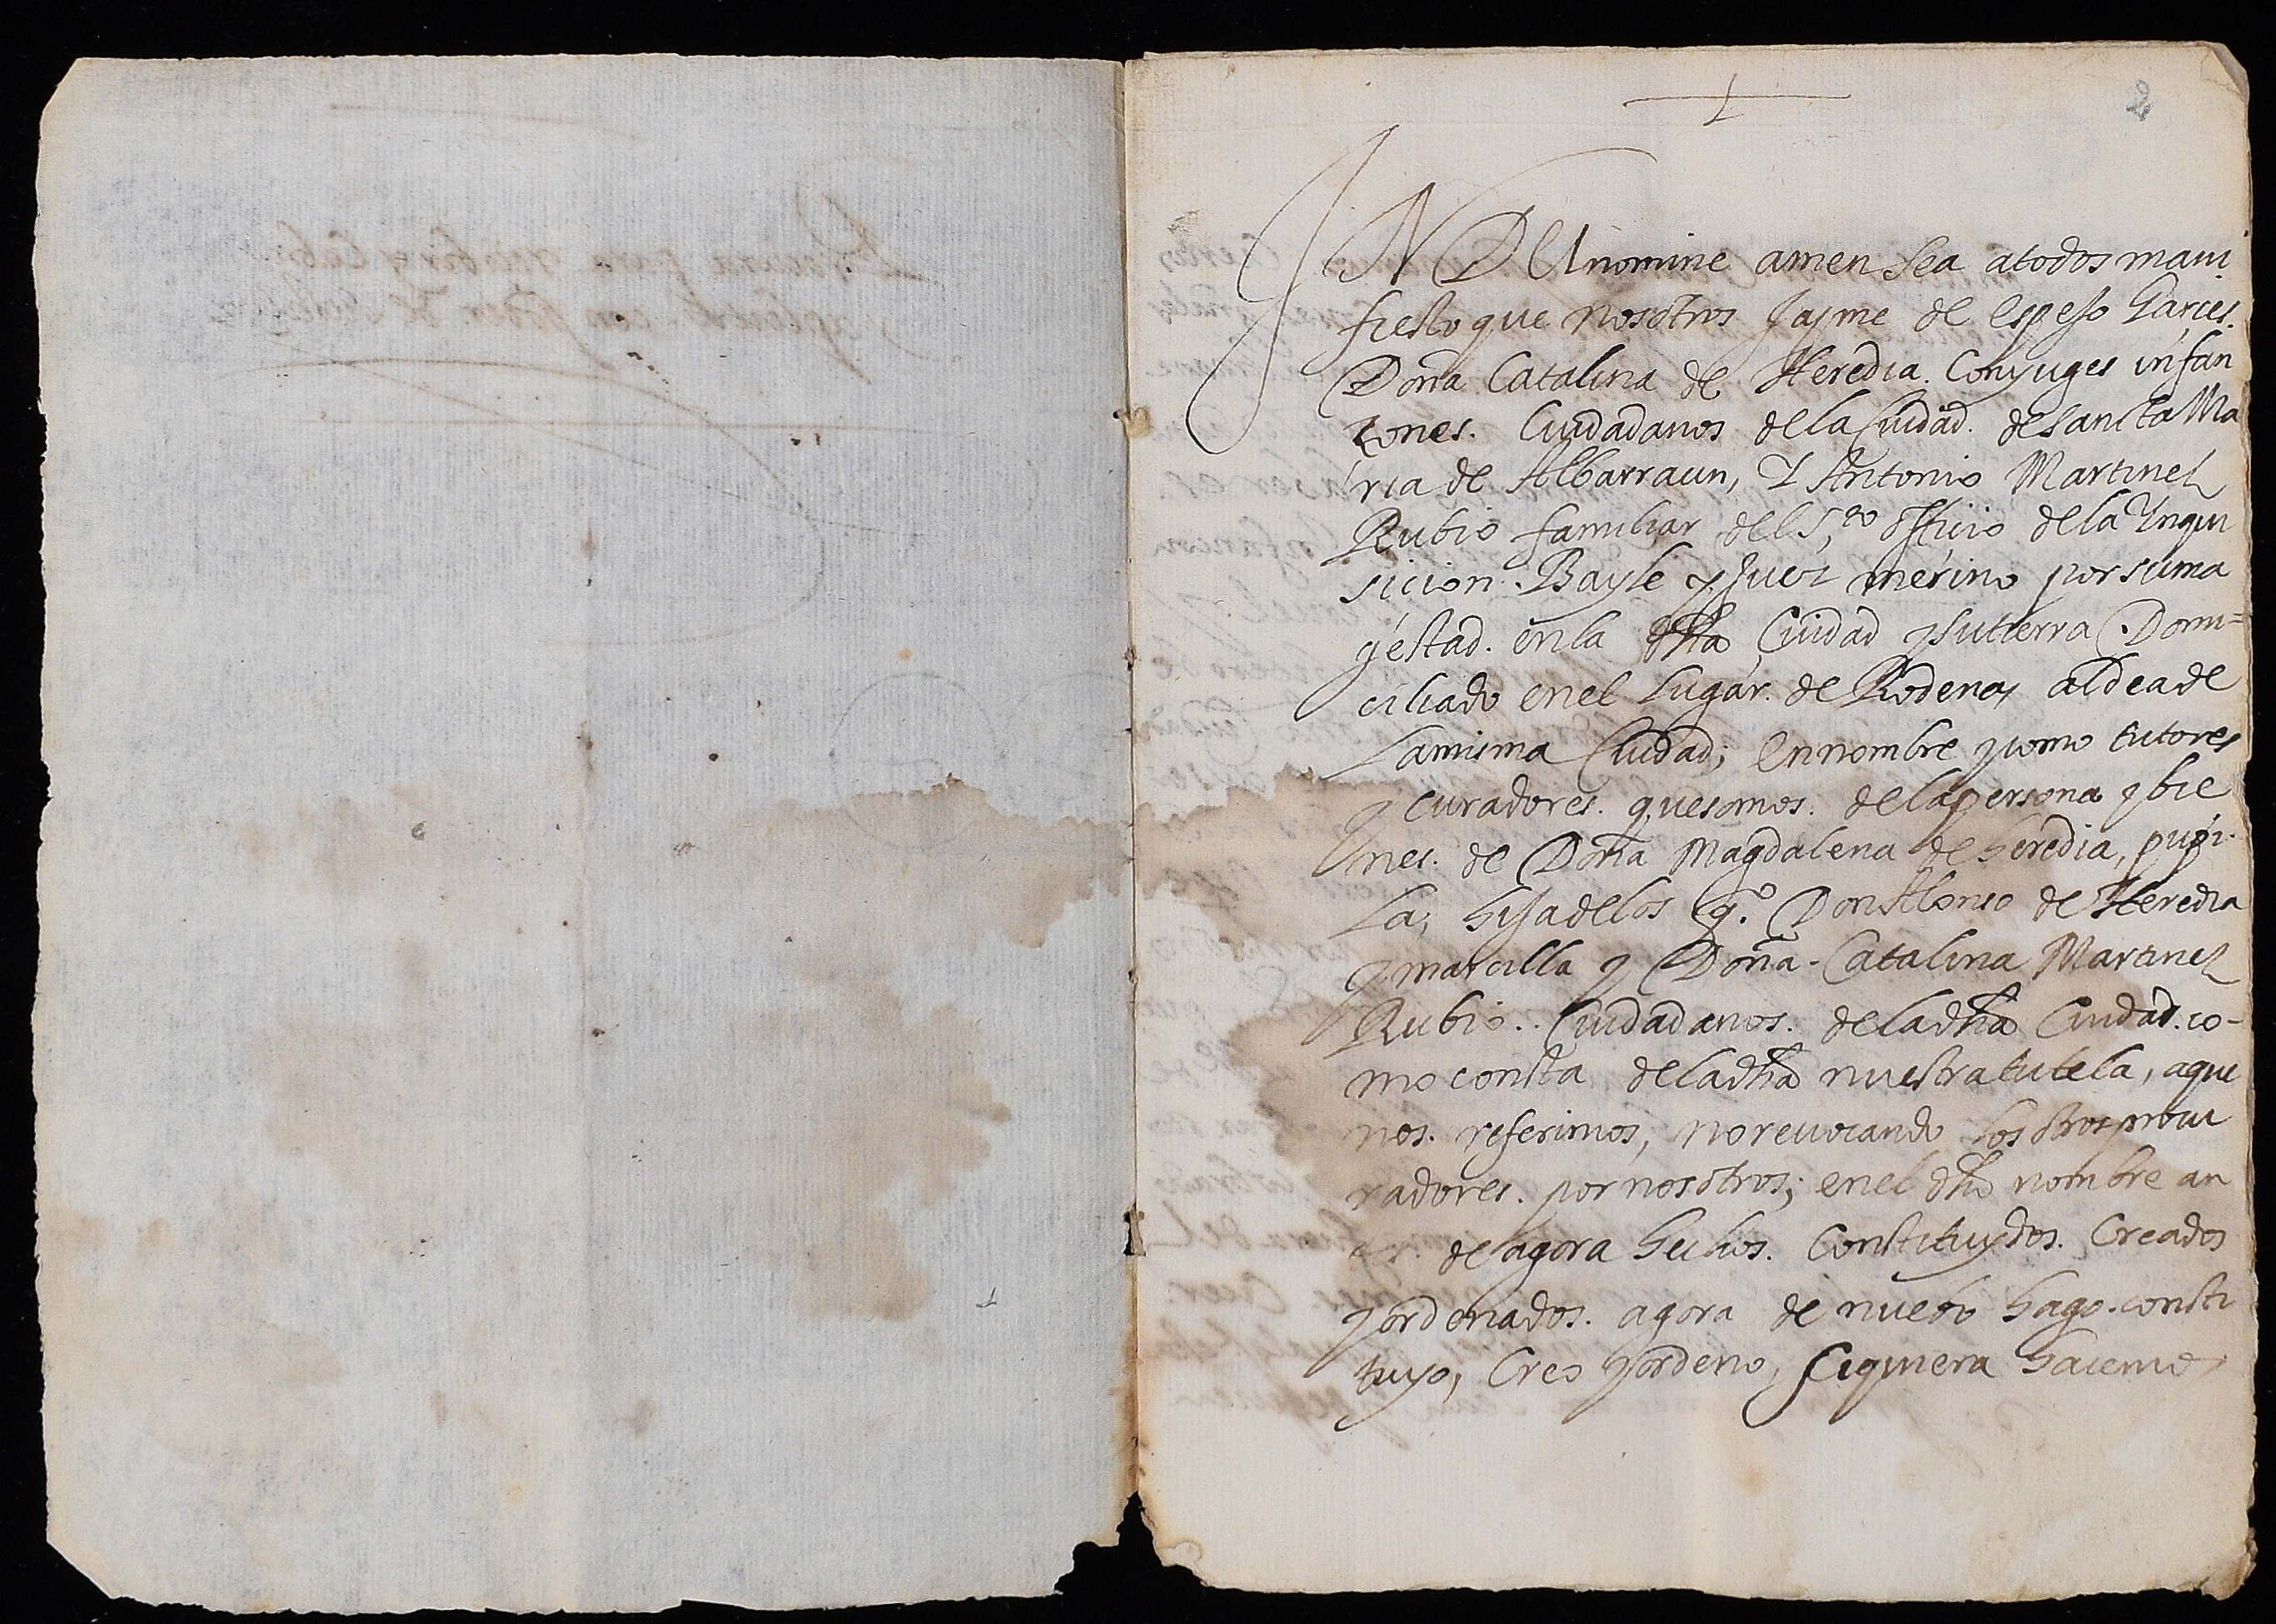 2
IN DEi nomine amen sea atodos mani
fiesto que nosotros Jayme de espejo Garces.
Doña Catalina de Heredia. Conyuges infan
zones. Ciudadanos dela Ciudad. desancta Ma
ria de Albarracin, Y Antonio Martinez
Rubio familiar del S.to officio dela Ynqui
sicion. Bayle y Juez merino por suma
gestad. enla dha Ciudad ysutierra. Domi=
ciliado enel Lugar. de Rodenas aldeade
Lamisma Ciudad; Ennombre ycomo tutores
y curadores. quesomos. delapersona ybie
nes. de Doña Magdalena de heredia, pupi.
La, hijadelos q.º Don Alonso de Heredia
y marcilla y Doña. Catalina Martinez
Rubio.. Ciudadanos. deladha Ciudad. co-
mo consta deladha nuestratutela, aque
nos. referimos, norevocando los otrosprocu
radores. por nosotros; enel dho nombre an
tes. de agora hechos. Constituydos. Creados
yordenados. agora de nuebo hago. consti
tuyo, Creo yordeno, siquiera hacemos